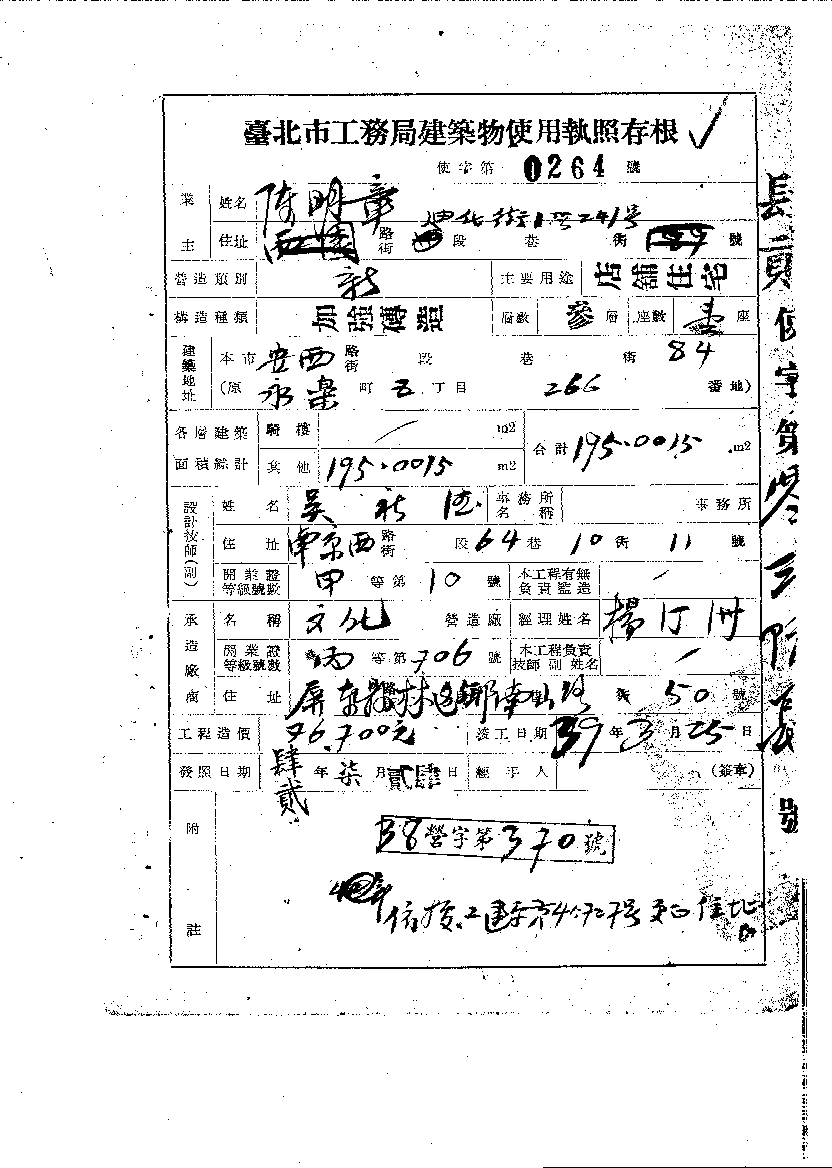 臺北市工務局建築物使用執照存根 ✓
使字第 0264 號
業主 姓名 陳明章
迪化街1段241號
住址 路街 段 巷 街 號
營造類別 新 主要用途 店舖住宅
構造種類 加強磚造 層數 參 層 座數 壹 座
建築地址 本市 安西 路街 段 巷 街 84
(原 永樂 町 五 丁目 266 番地)
各層建築面積總計 騎樓 / m2 合計 195.0015 m2
其他 195.0015 m2
設計技師(副) 姓名 吳 事務所名稱 事務所
住址 南京西 路街 段 64 巷 10 街 11 號
開業證等級號數 甲 等第 10 號 本工程有無負責監造 /
承造廠商 名稱 文化 營造廠 經理姓名 楊 洲
開業證等級號數 丙 等第 706 號 本工程負責技師副姓名 /
住址 屏東縣林邊鄉南 路 50 號
工程造價 76.700元 竣工日期 39 年 3 月 25 日
發照日期 肆貳 年 柒 月 貳肆 日 經手人 (簽章)
附註
38營字第370號
住址
長貢使字第
號